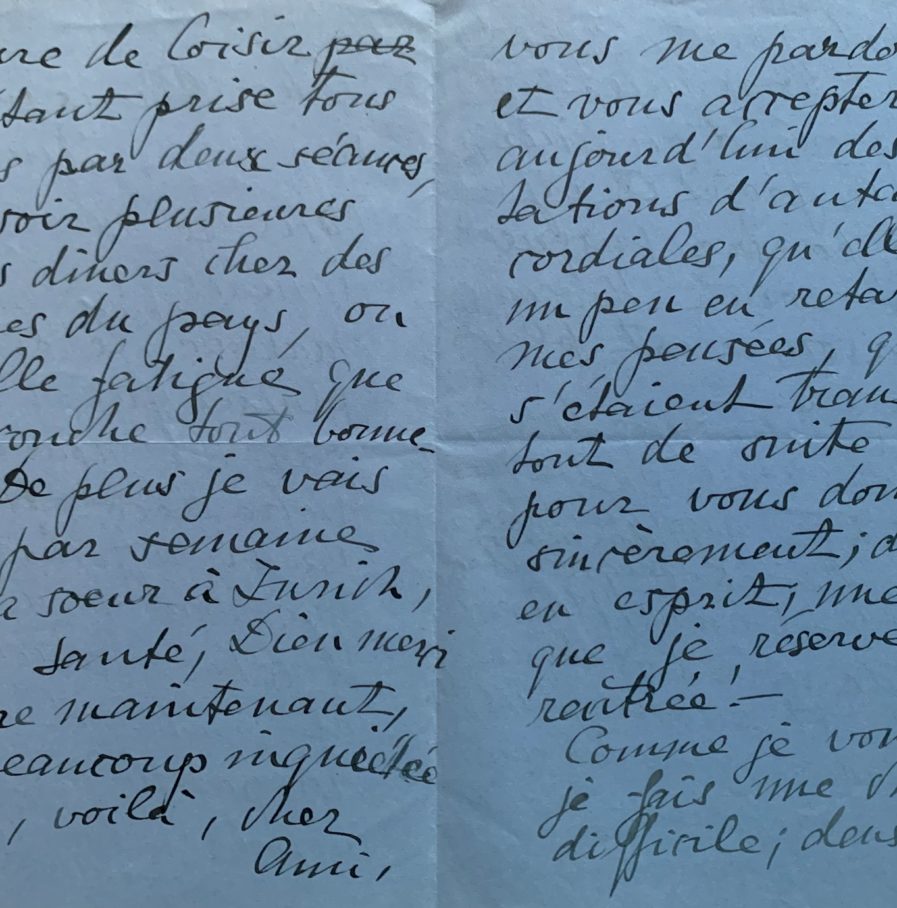 de loisir par
étant prise tous
par deux séances,
plusieures
diners chez des
du pays, on
fatigué que
tout bonne-
De plus je vais
par semaine
soeur à Zurich,
santé, Dieu merci
maintenant,
beaucoup inquiétée
, voilà, cher
Ami,
vous me pardo
et vous accepter
aujourd'hui des
tations d'auta
cordiales, qu'elle
un peu en reta
mes pensées, q
s'étaient tran
tout de suite
pour vous don
sincèrement; d
en esprit, une
que je réserve
rentrée! —
Comme je vou
je fais une
difficile; deux